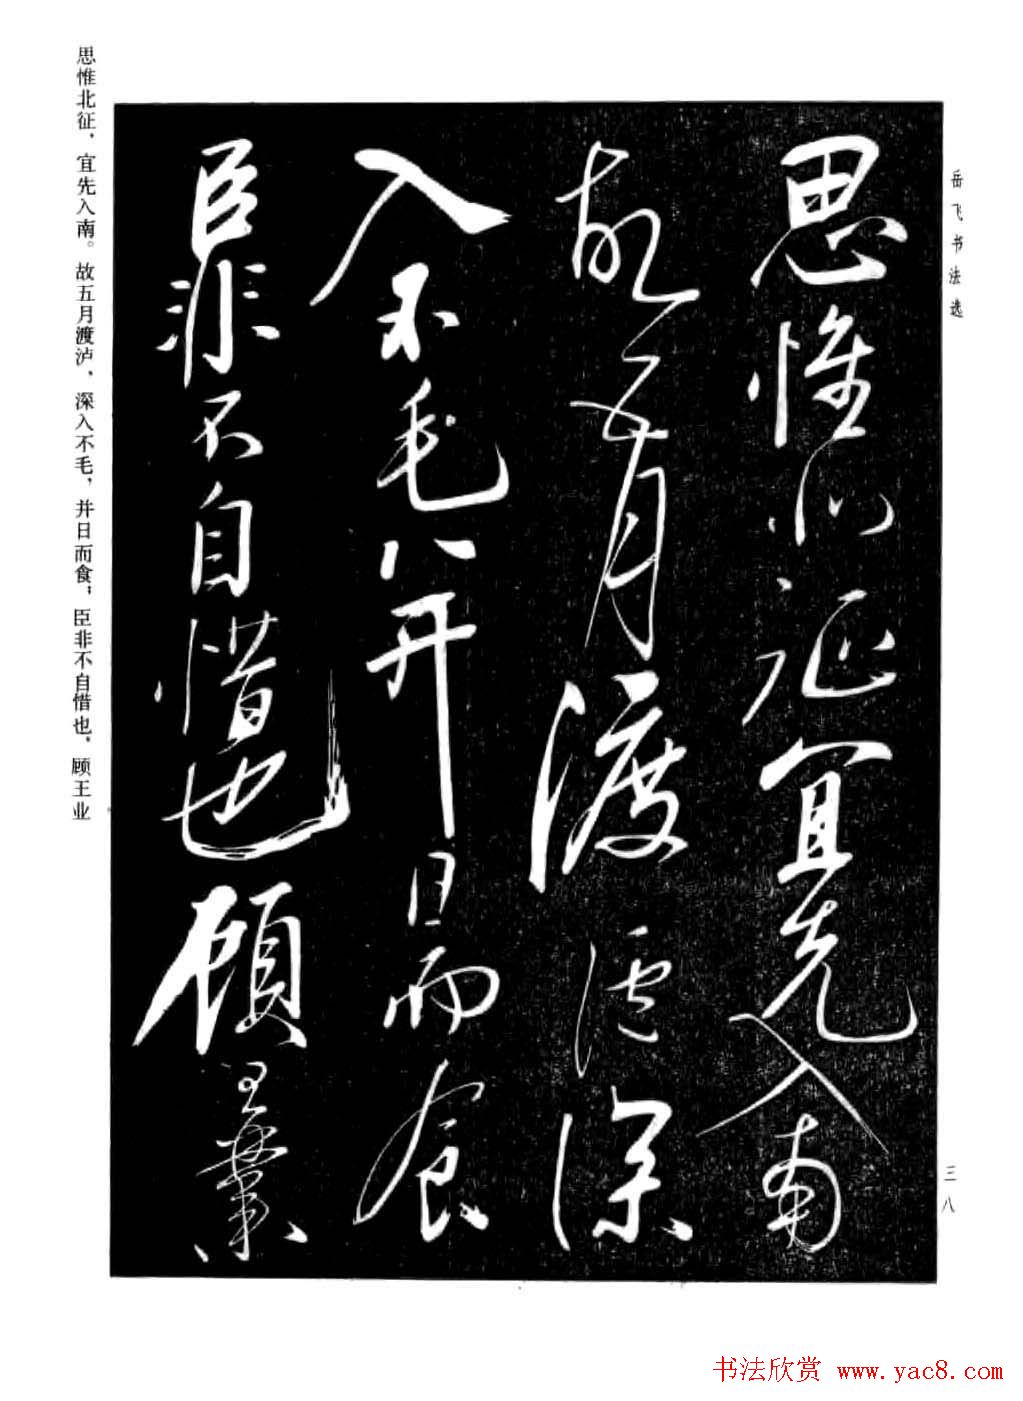 岳飞书法选
思惟北征宜先入南
故五月渡泸深
入不毛并日而食
臣非不自惜也顾王业
思惟北征，宜先入南。故五月渡泸，深入不毛，并日而食；臣非不自惜也，顾王业
三八
书法欣赏 www.yac8.com